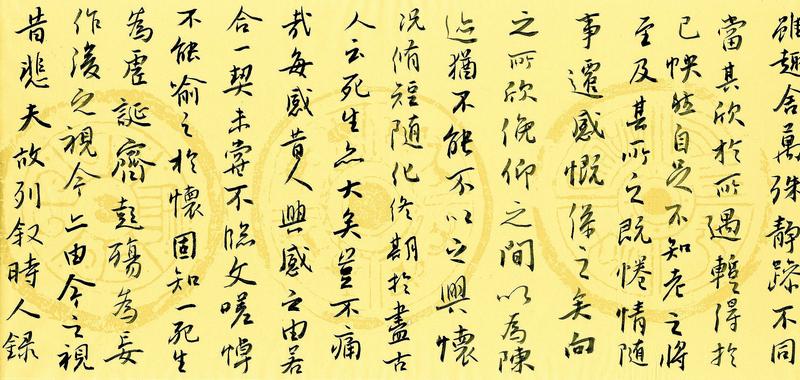 雖趣舍萬殊靜躁不同
當其欣於所遇暫得於
己快然自足不知老之將
至及其所之既惓情隨
事遷感慨係之矣向
之所欣俛仰之間以為陳
迹猶不能不以之興懷
況脩短隨化終期於盡古
人云死生亦大矣豈不痛
哉每感昔人興感之由若
合一契未嘗不臨文嗟悼
不能喻之於懷固知一死生
為虛誕齊彭殤為妄
作後之視今亦由今之視
昔悲夫故列敘時人錄